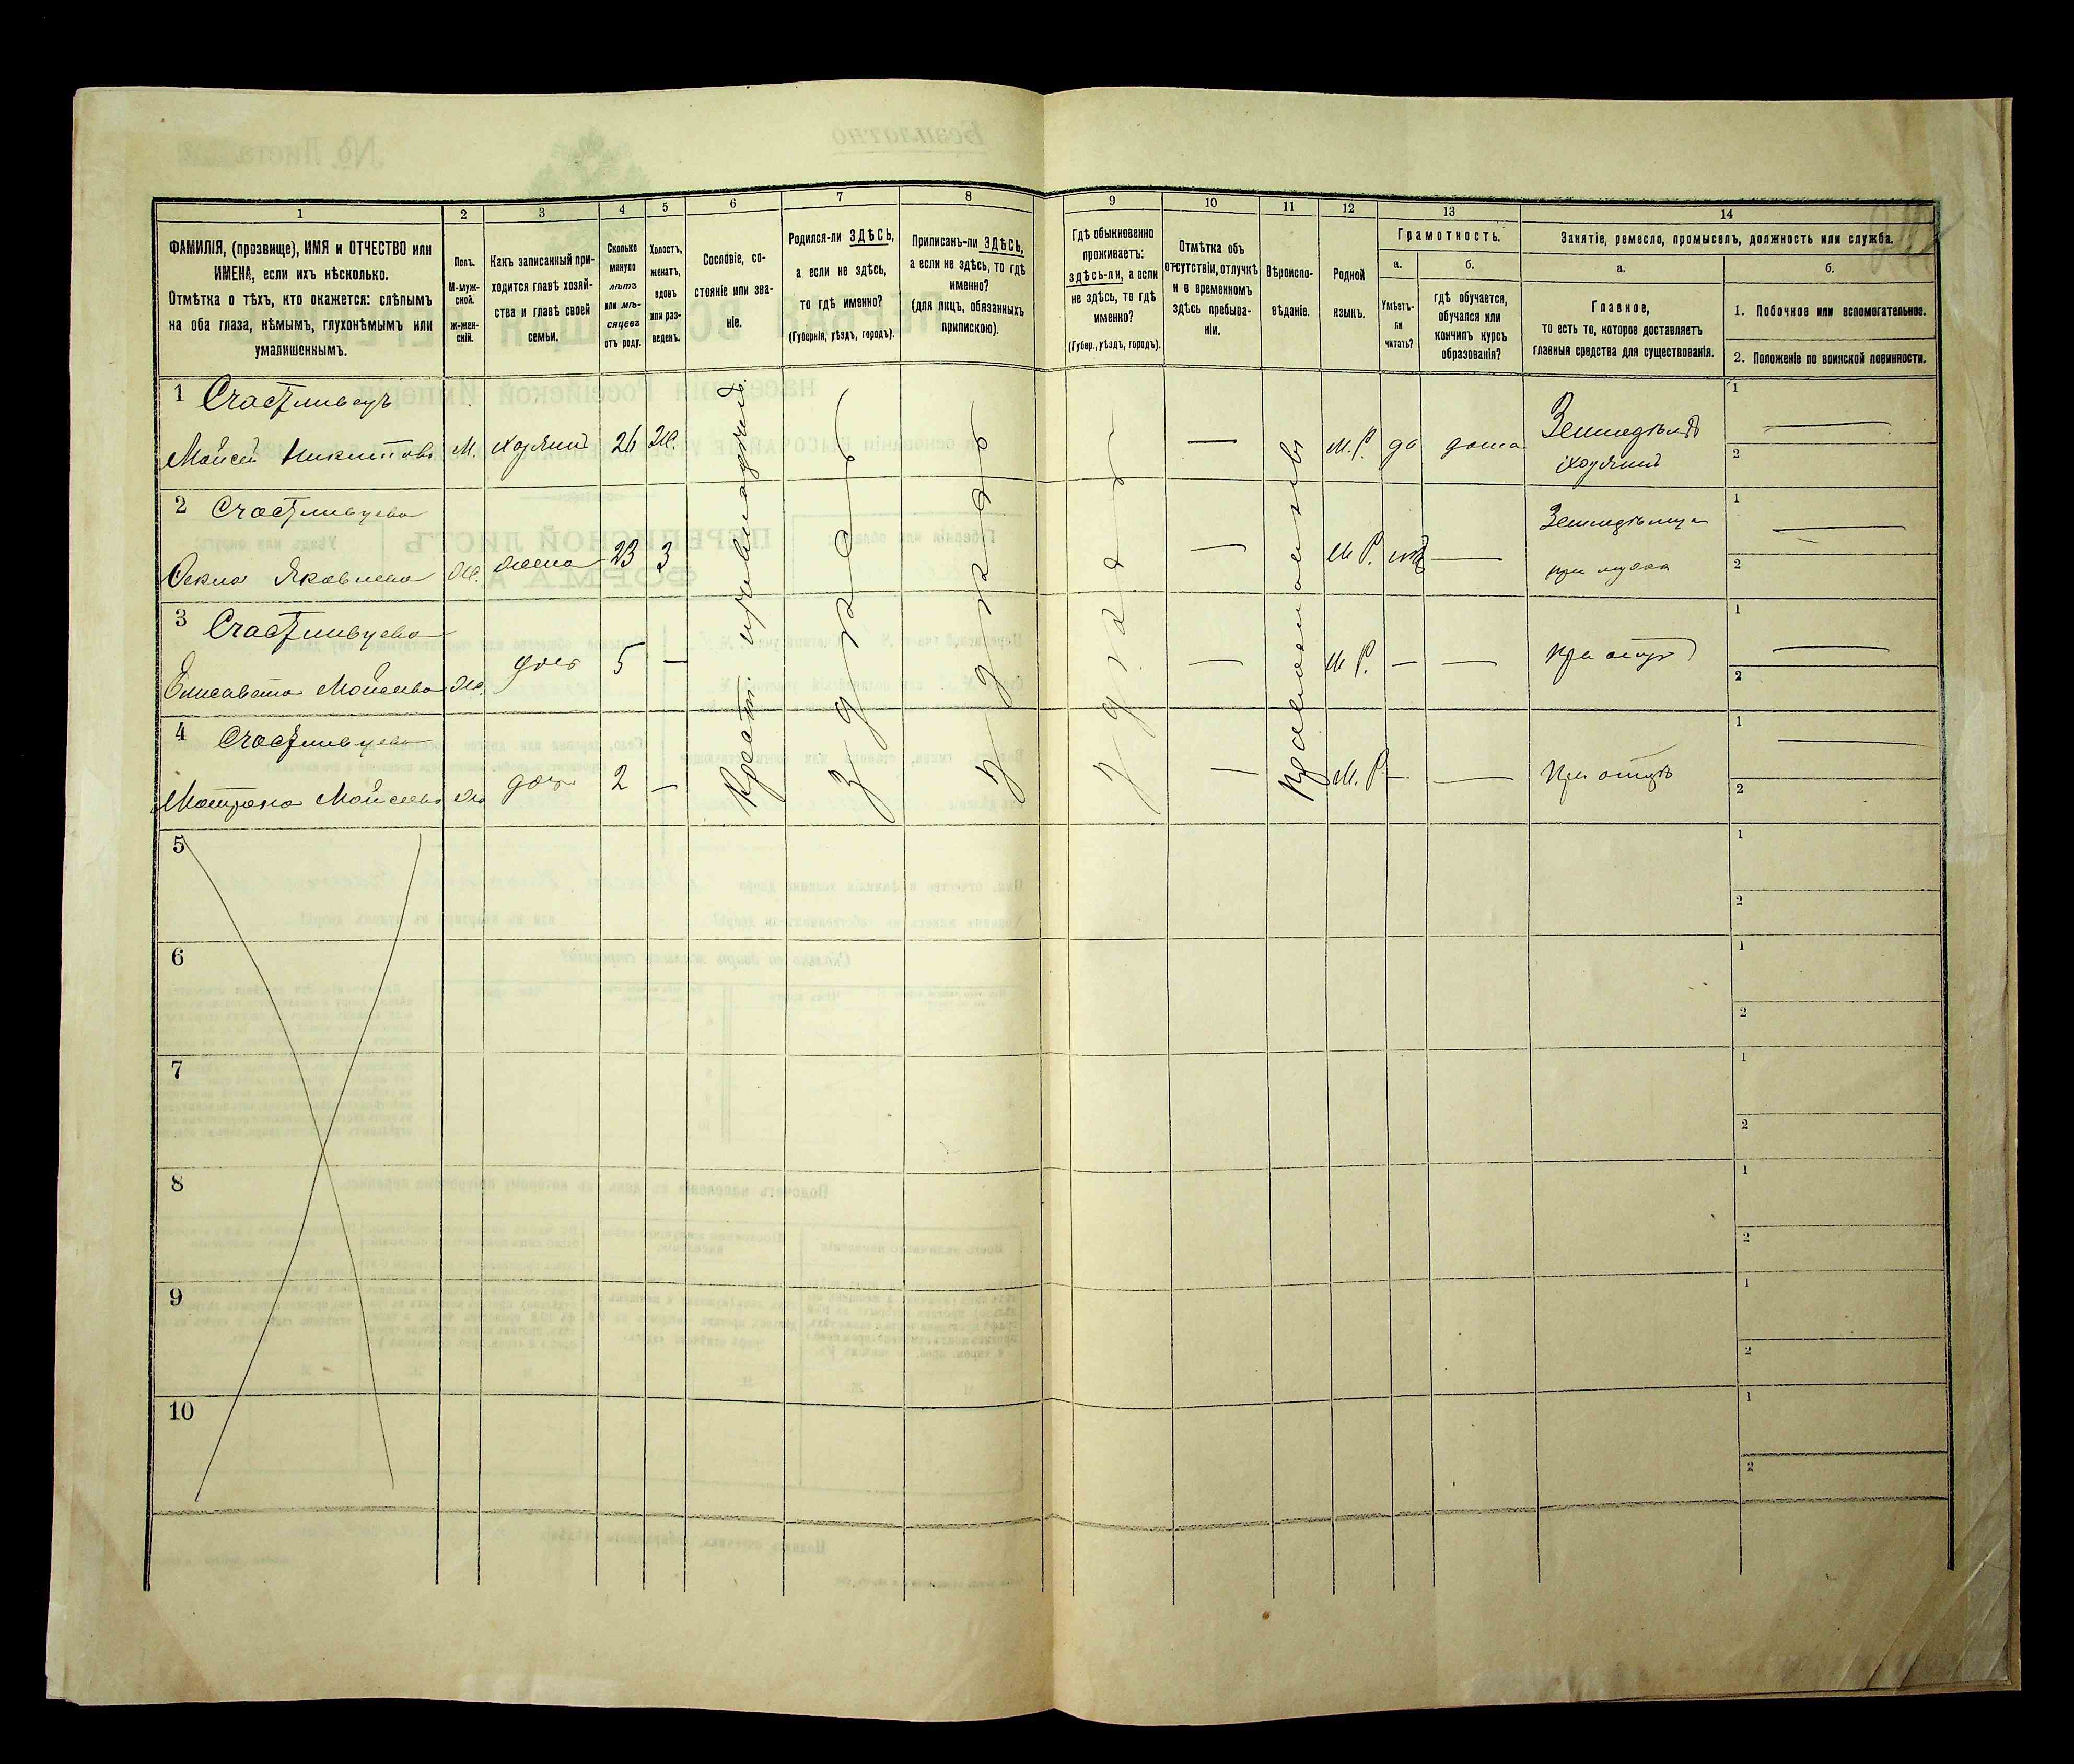 1
2
3
4
5
6
7
8
9
10
11
12
13
14
ФАМИЛІЯ, (прозвище), ИМЯ и ОТЧЕСТВО или
ИМЕНА, если ихъ нѣсколько.
Отмѣтка о тѣхъ, кто окажется: слѣпымъ
на оба глаза, нѣмымъ, глухонѣмымъ или
умалишеннымъ.
Полъ.
М-муж-
ской.
ж-жен-
скій.
Какъ записанный при-
ходится главѣ хозяй-
ства и главѣ своей
семьи.
Сколько
минуло
лѣтъ
или мѣ-
сяцевъ
отъ роду.
Холостъ,
женатъ,
вдовъ
или раз-
веденъ.
Сословіе, со-
стояніе или зва-
ніе.
Родился-ли ЗДѢСЬ,
а если не здѣсь,
то гдѣ именно?
(Губернія, уѣздъ, городъ).
Приписанъ-ли ЗДѢСЬ,
а если не здѣсь, то гдѣ
именно?
(для лицъ, обязанныхъ
припискою).
Гдѣ обыкновенно
проживаетъ:
здѣсь-ли, а если
не здѣсь, то гдѣ
именно?
(Губер., уѣздъ, городъ).
Отмѣтка объ
отсутствіи, отлучкѣ
и в временномъ
здѣсь пребыва-
ніи.
Вѣроиспо-
вѣданіе.
Родной
языкъ.
Грамотность.
а.
Умѣетъ-
ли
читать?
б.
гдѣ обучается,
обучался или
кончилъ курсъ
образованія?
Занятіе, ремесло, промыселъ, должность или служба.
а.
Главное,
то есть то, которое доставляетъ
главныя средства для существованія.
б.
1. Побочное или вспомогательное.
2. Положеніе по воинской повинности.
1 Счастливецъ
Мойсей Никитовъ М. хозяинъ 26 Ж. М.Р. да дома Земледѣлъ
хозяинъ
1
2
2 Счастливцева
Фекла Яковлева Ж. жена 23 З М.Р. нѣтъ Земледѣлица
при мужѣ
1
2
3 Счастливцева
Елисавета Мойсеева Ж. дочь 5 — М.Р. — — при отцѣ
1
2
4 Счастливцева
Матрона Мойсеева Ж. дочь 2 — М.Р. — — При отцѣ
1
2
Крест.
здѣсь
здѣсь
здѣсь
Православн
5
1
2
6
1
2
7
1
2
8
1
2
9
1
2
10
1
2